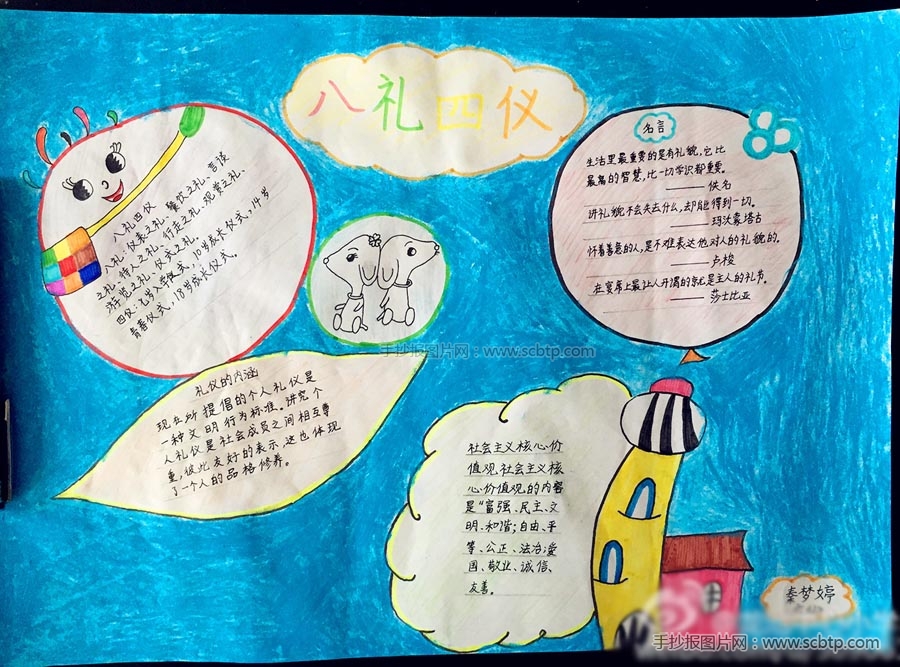 八礼四仪
八礼四仪
八礼:仪表之礼、餐饮之礼、言谈
之礼、待人之礼、行走之礼、观赏之礼、
游览之礼、仪式之礼。
四仪:7岁入学仪式、10岁成长仪式、14岁
青春仪式、18岁成长仪式。
名言
生活里最重要的是有礼貌,它比
最高的智慧,比一切学识都重要。
——佚名
讲礼貌不会失去什么,却能得到一切。
——玛沃蒙塔古
怀着善意的人,是不难表达他对人的礼貌的。
——卢梭
在宴席上最让人开胃的就是主人的礼节。
——莎士比亚
手抄报图片网:www.scbtp.com
礼仪的内涵
现在所提倡的个人礼仪是
一种文明行为标准。讲究个
人礼仪是社会成员之间相互尊
重,彼此友好的表示,这也体现
了一个人的品格修养。
社会主义核心价
值观、社会主义核
心价值观的内容
是“富强、民主、文
明、和谐;自由、平
等、公正、法治;爱
国、敬业、诚信、
友善。
秦梦婷
手抄报图片网:www.scbtp.com